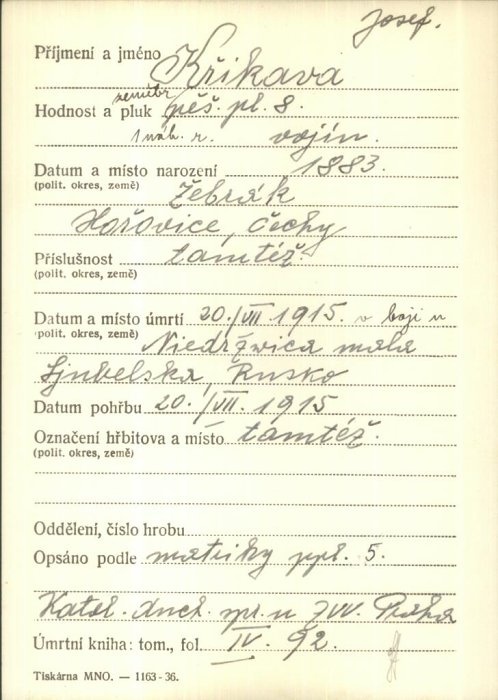 Josef.
Příjmení a jméno Křikava
zeměbr.
Hodnost a pluk pěš. pl. 8.
1 náh. r. vojín.
Datum a místo narození 1883.
(polit. okres, země) Žebrák
Hořovice, Čechy
Příslušnost tamtéž.
(polit. okres, země)
Datum a místo úmrtí 20./VII. 1915. v boji u
(polit. okres, země) Niedržwica mala
Ljubelska, Rusko
Datum pohřbu 20./VII. 1915
Označení hřbitova a místo tamtéž.
(polit. okres, země)
Oddělení, číslo hrobu
Opsáno podle matriky ppl. 5.
Katol. duch. spr. u ZVV. Praha
Úmrtní kniha: tom., fol. IV. 92.
Tiskárna MNO. — 1163-36.